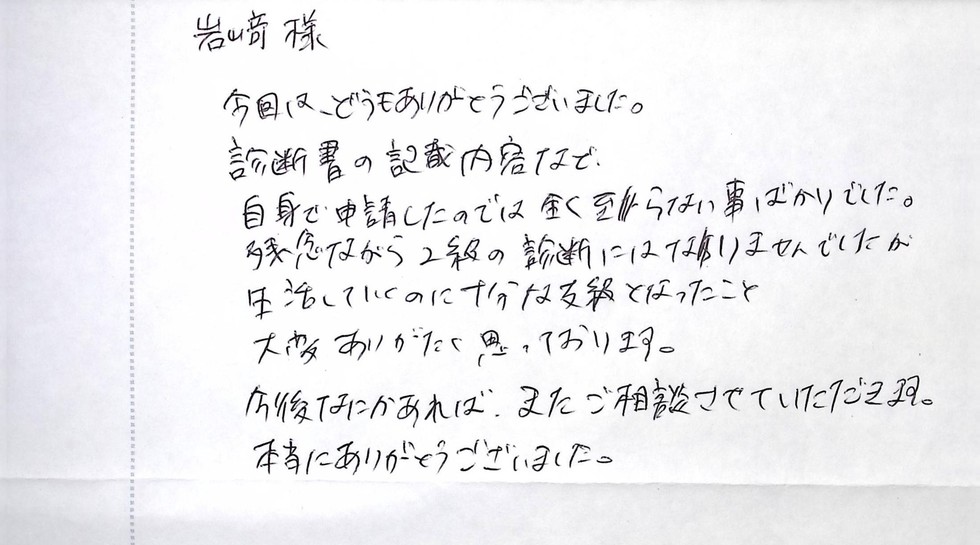 岩崎 様
今回は、どうもありがとうございました。
診断書の記載内容など、
自身で申請したのでは全く至らない事ばかりでした。
残念ながら2級の診断にはなりませんでしたが
生活していくのに十分な支給となったこと
大変ありがたく思っております。
今後なにかあれば、またご相談させていただきます。
本当にありがとうございました。